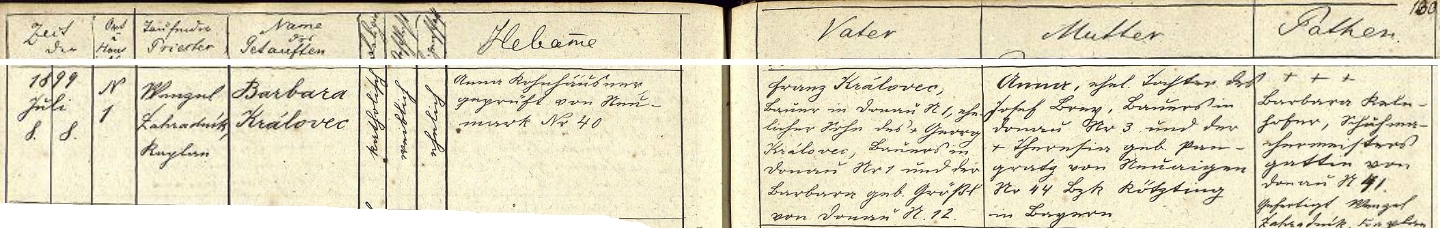 130
Zeit
der
Ort
u
Haus
Taufender
Priester
Name
des
Getauften
Hebamme
Vater
Mutter
Pathen
1899
Juli
8. 8.
N
1
Wenzel
Zahradnik,
Kaplan
Barbara
Královec
katholisch
weiblich
ehelich
Anna Kohnhäuser
geprüft von Neu-
mark Nr 40
Franz Královec,
Bauer in Donau N 1, ehe-
licher Sohn des + Georg
Královec, Bauers in
Donau Nr 1 und der
Barbara geb. Größl
von Donau N. 12.
Anna, ehel. Tochter des
Josef Brey, Bauers in
Donau Nr 3 und der
+ Theresia geb. Pan-
gratz von Neuaigen
No 44 Bzk Kötzting
in Bayern
+ + +
Barbara Keln-
hofer, Schuhma-
chermeisters
gattin von
Donau N 41.
Gefertigt Wenzel
Zahradnik, Kaplan